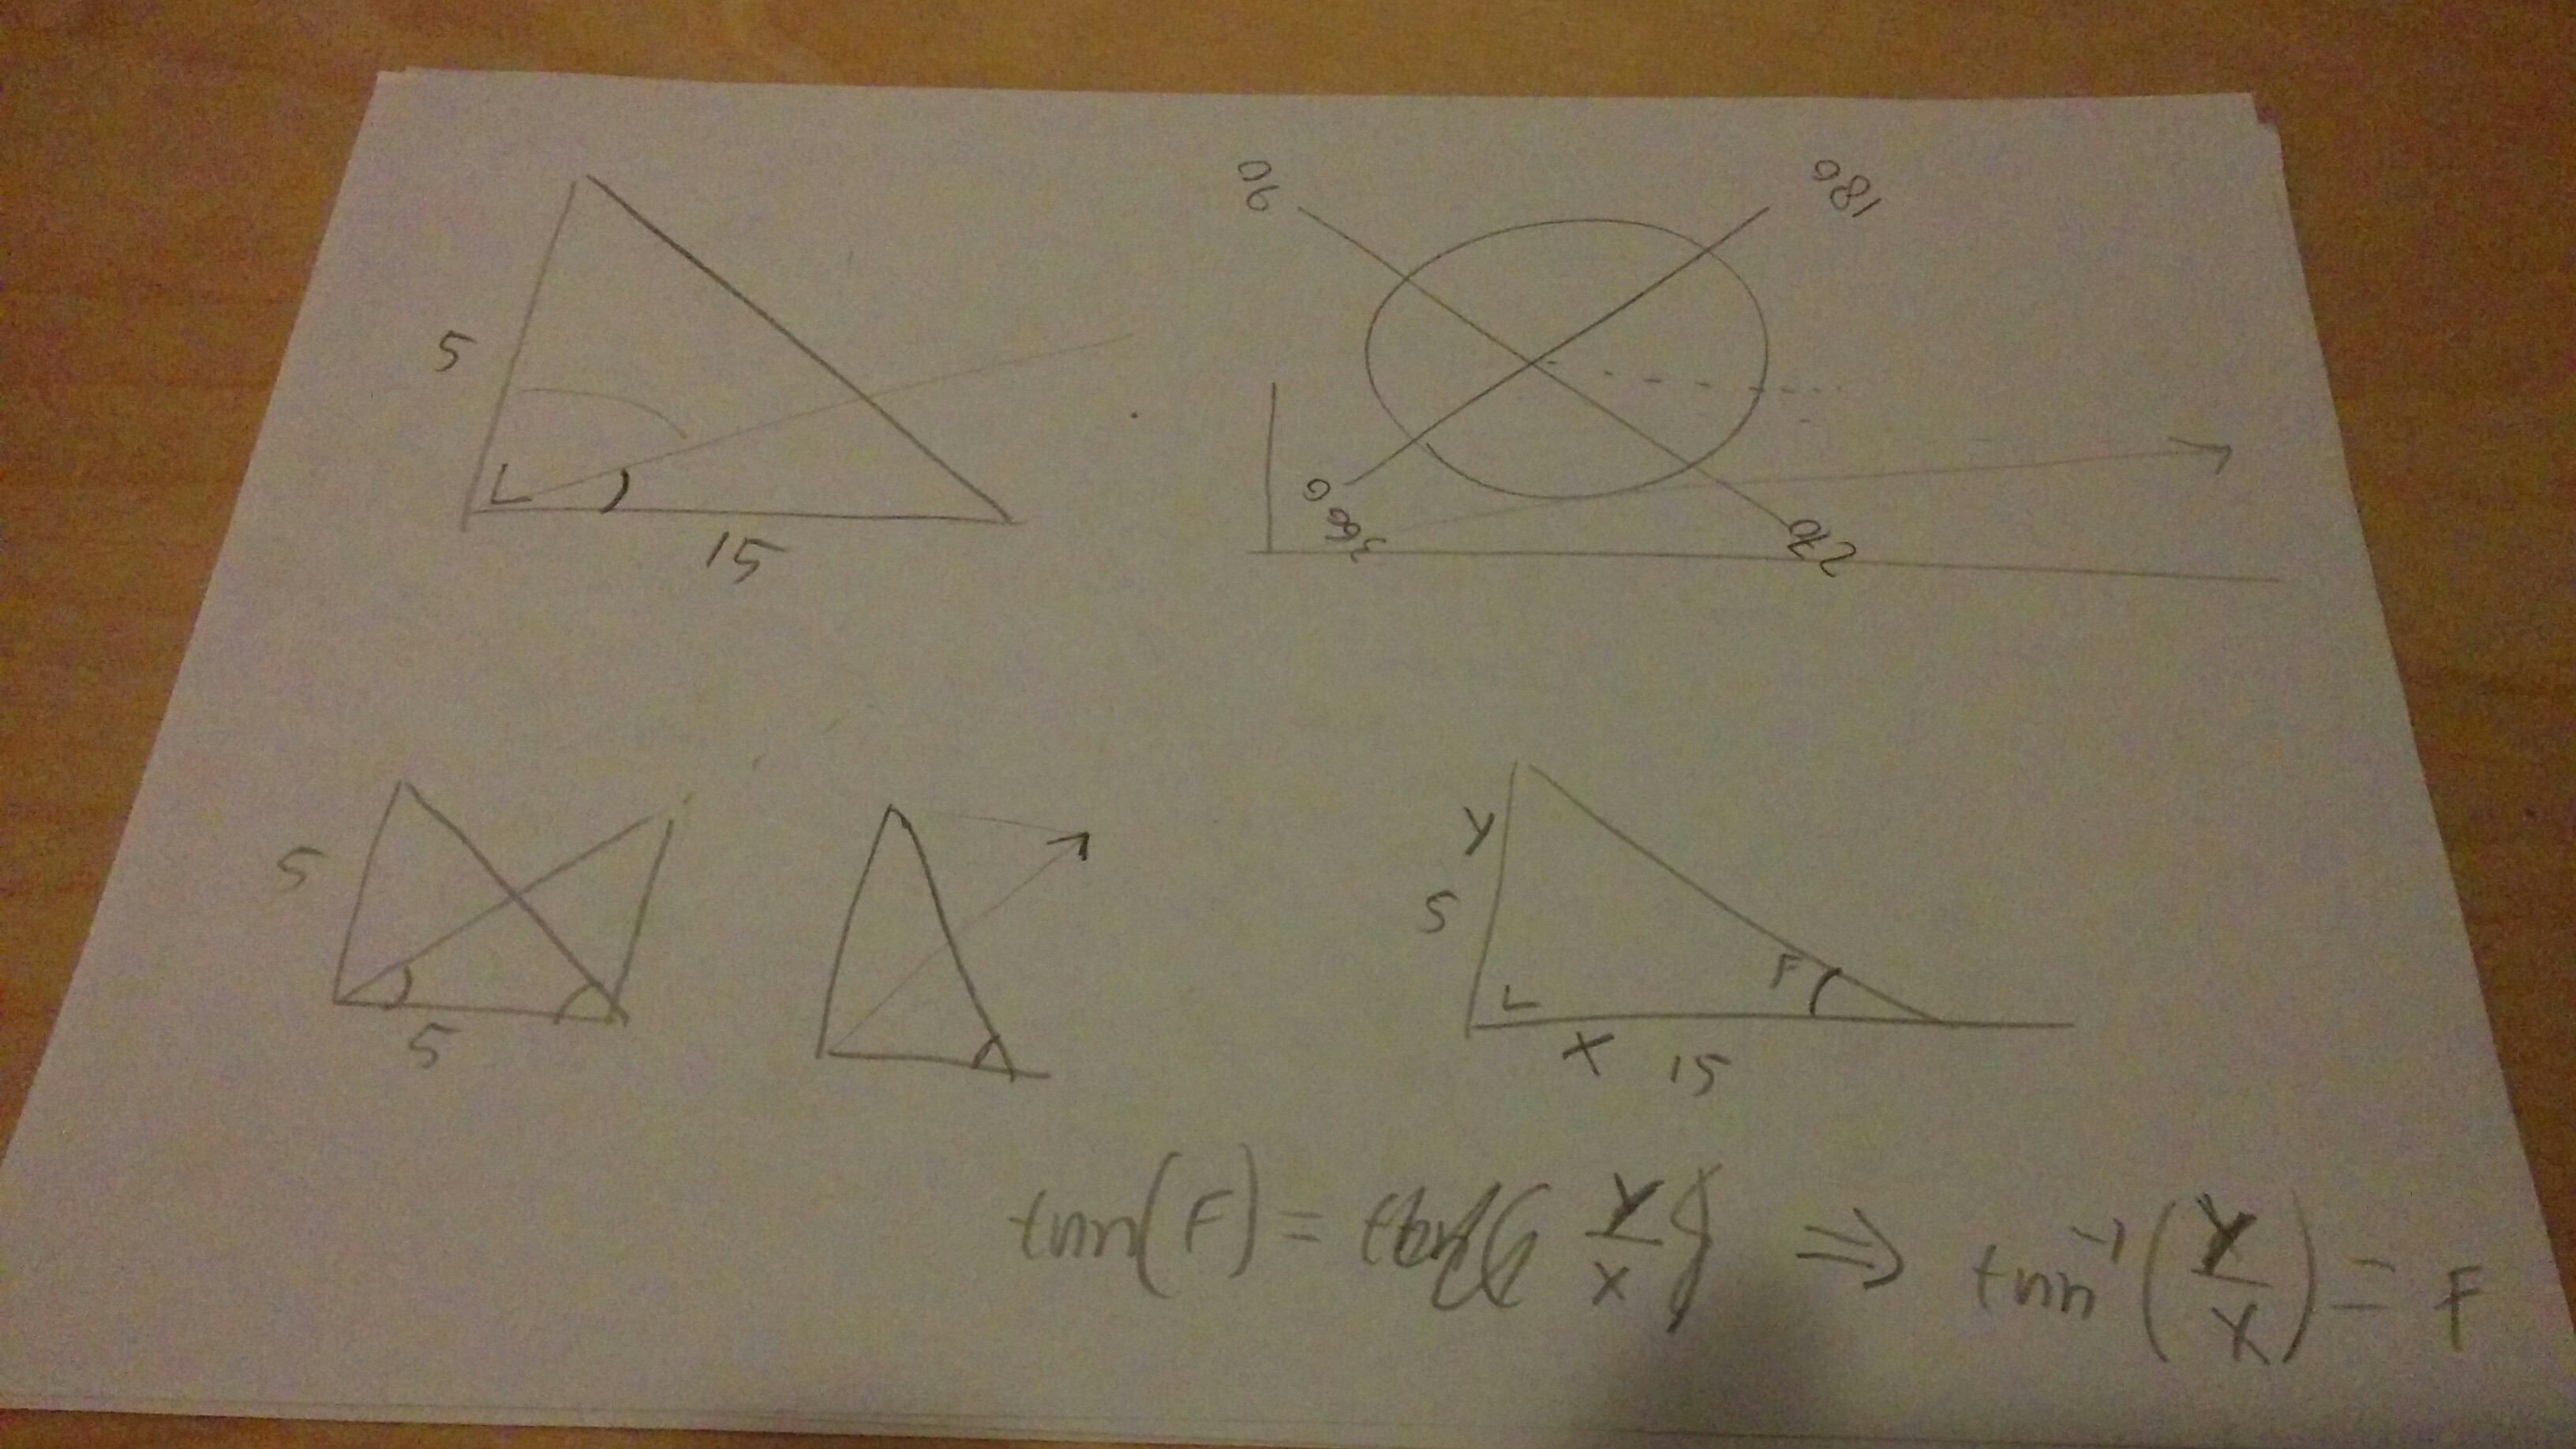 90
180
5
0
360
270
15
y
5
5
F
5
x 15
tan(F) = y/x ⇒ tan⁻¹(y/x) = F